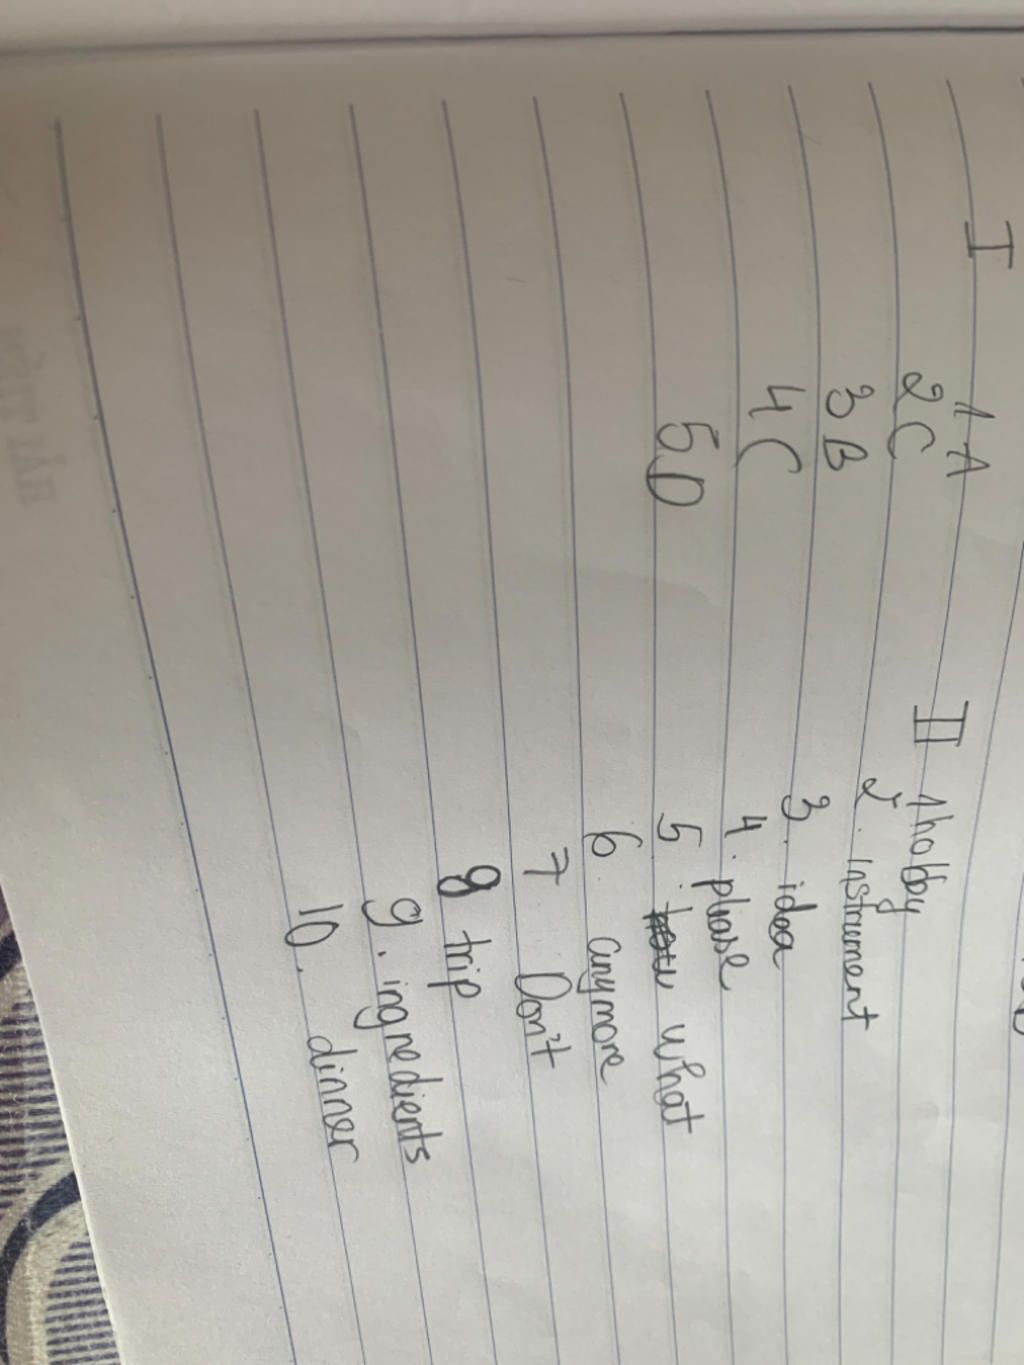 I
1 A
2 C
3 B
4 C
5 D
II 1 hobby
2. instrument
3. idea
4. please
5. what
6. anymore
7 Don't
8 trip
9. ingredients
10. dinner